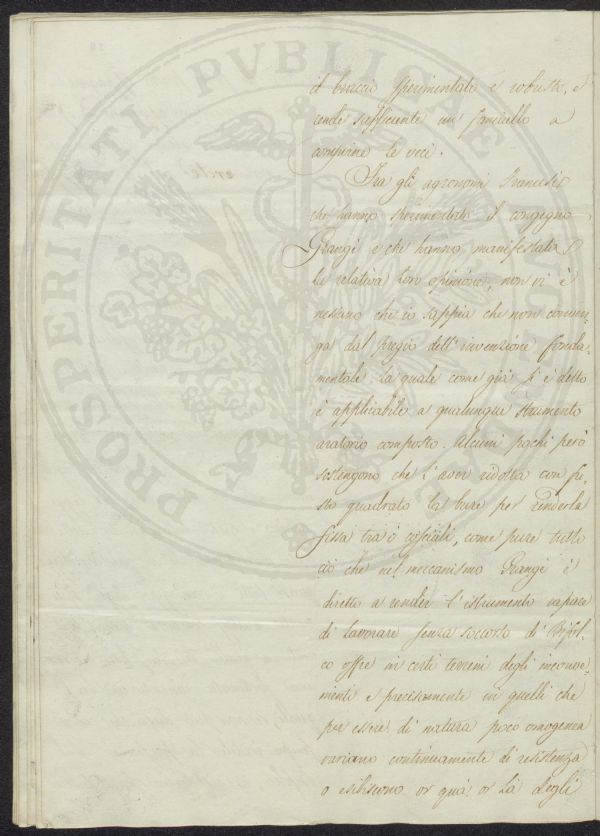 il braccio sperimentato e robusto, e
rende sufficiente un fanciullo a
compirne le veci.
Fra gli agronomi Francesi
che hanno sperimentato il congegno
Grangé e che hanno manifestata
la relativa loro opinione, non vi è
nessuno che io sappia che non conven-
ga dal pregio dell'invenzione fonda-
mentale. La quale come già si è detto
è applicabile a qualunque strumento
aratorio composto. Alcuni pochi però
sostengono che l'aver ridotta con fu-
sto quadrato la bure per renderla
fissa tra i cosciali, come pure tutto
ciò che nel meccanismo Grangé è
diretto a render l'istrumento capace
di lavorare senza soccorso di Bifol-
co offre in certi terreni degli inconve-
nienti e precisamente in quelli che
per essere di natura poco omogenea
variano continuamente di resistenza
o esibiscono or quà or là degli
PROSPERITATI PVBLICAE